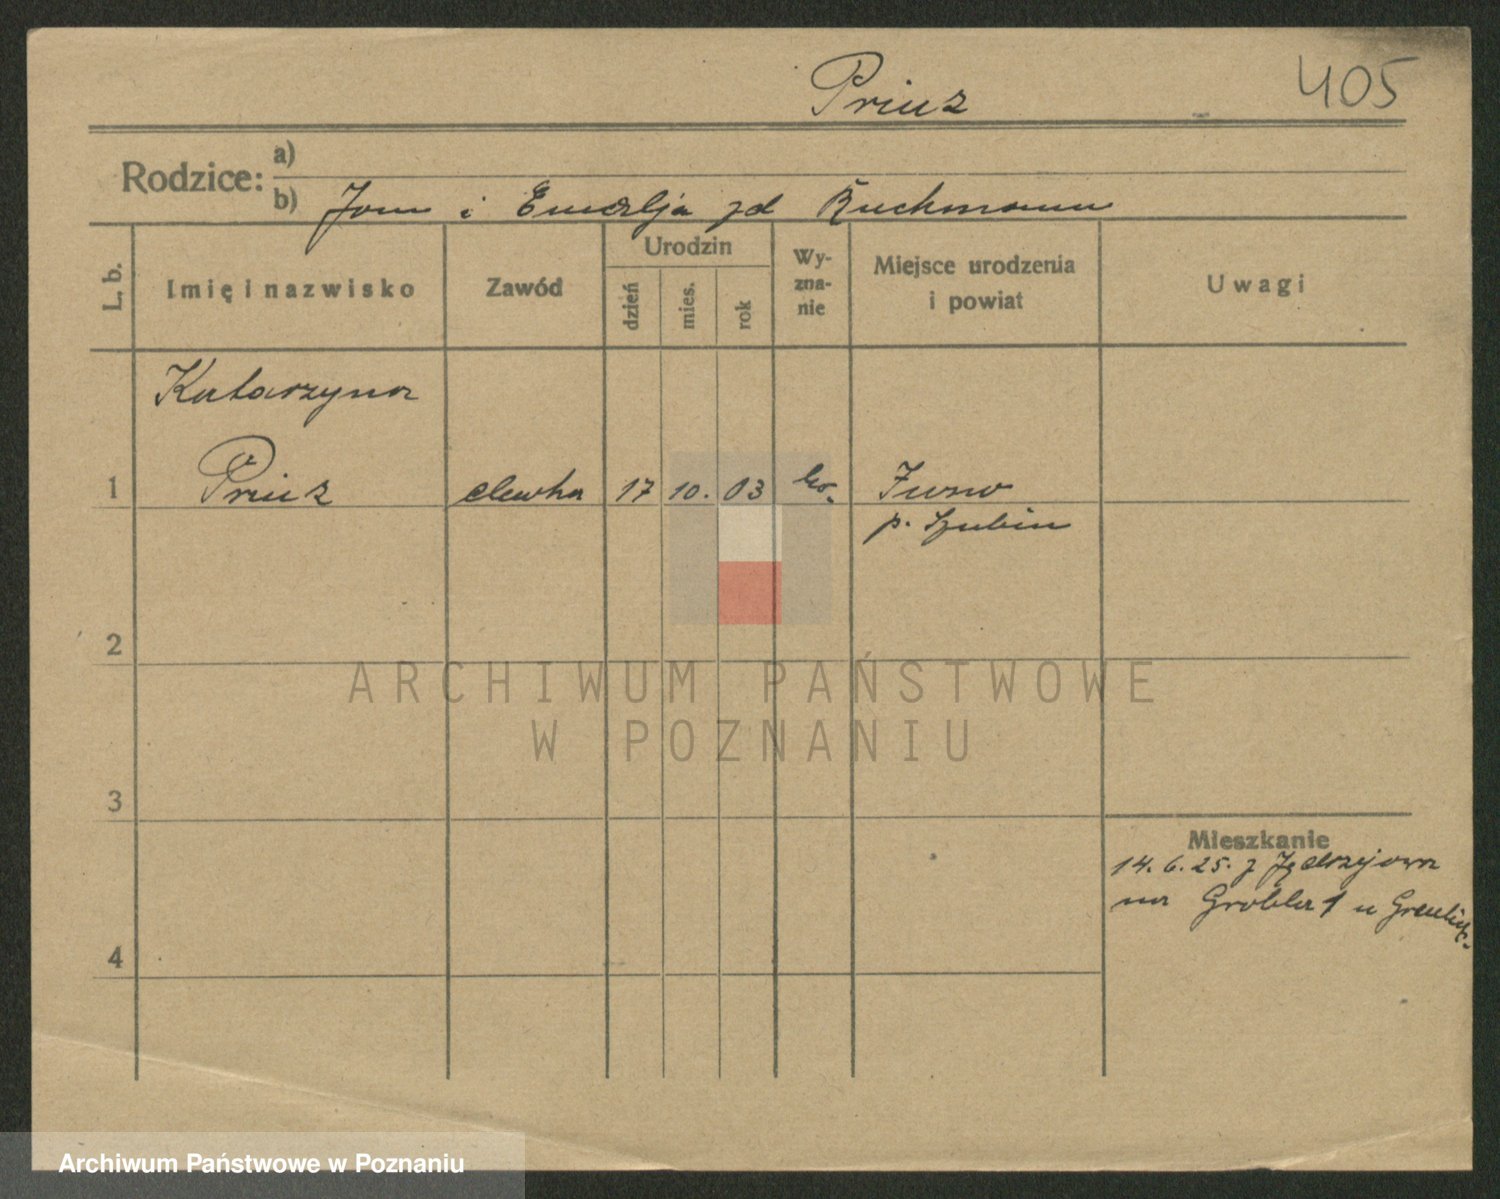 Prinz
405
Rodzice:
a)
b) Jan i Emilja zd Ruchmann
L. b.
Imię i nazwisko
Zawód
Urodzin
dzień
mies.
rok
Wy-
zna-
nie
Miejsce urodzenia
i powiat
Uwagi
Katarzyna
1 Prinz 17 10. 03
p. Szubin
2
3
4
Mieszkanie
14. 6. 25. z Jędrzejewa
na Grobla 1 u
ARCHIWUM PAŃSTWOWE
W POZNANIU
Archiwum Państwowe w Poznaniu